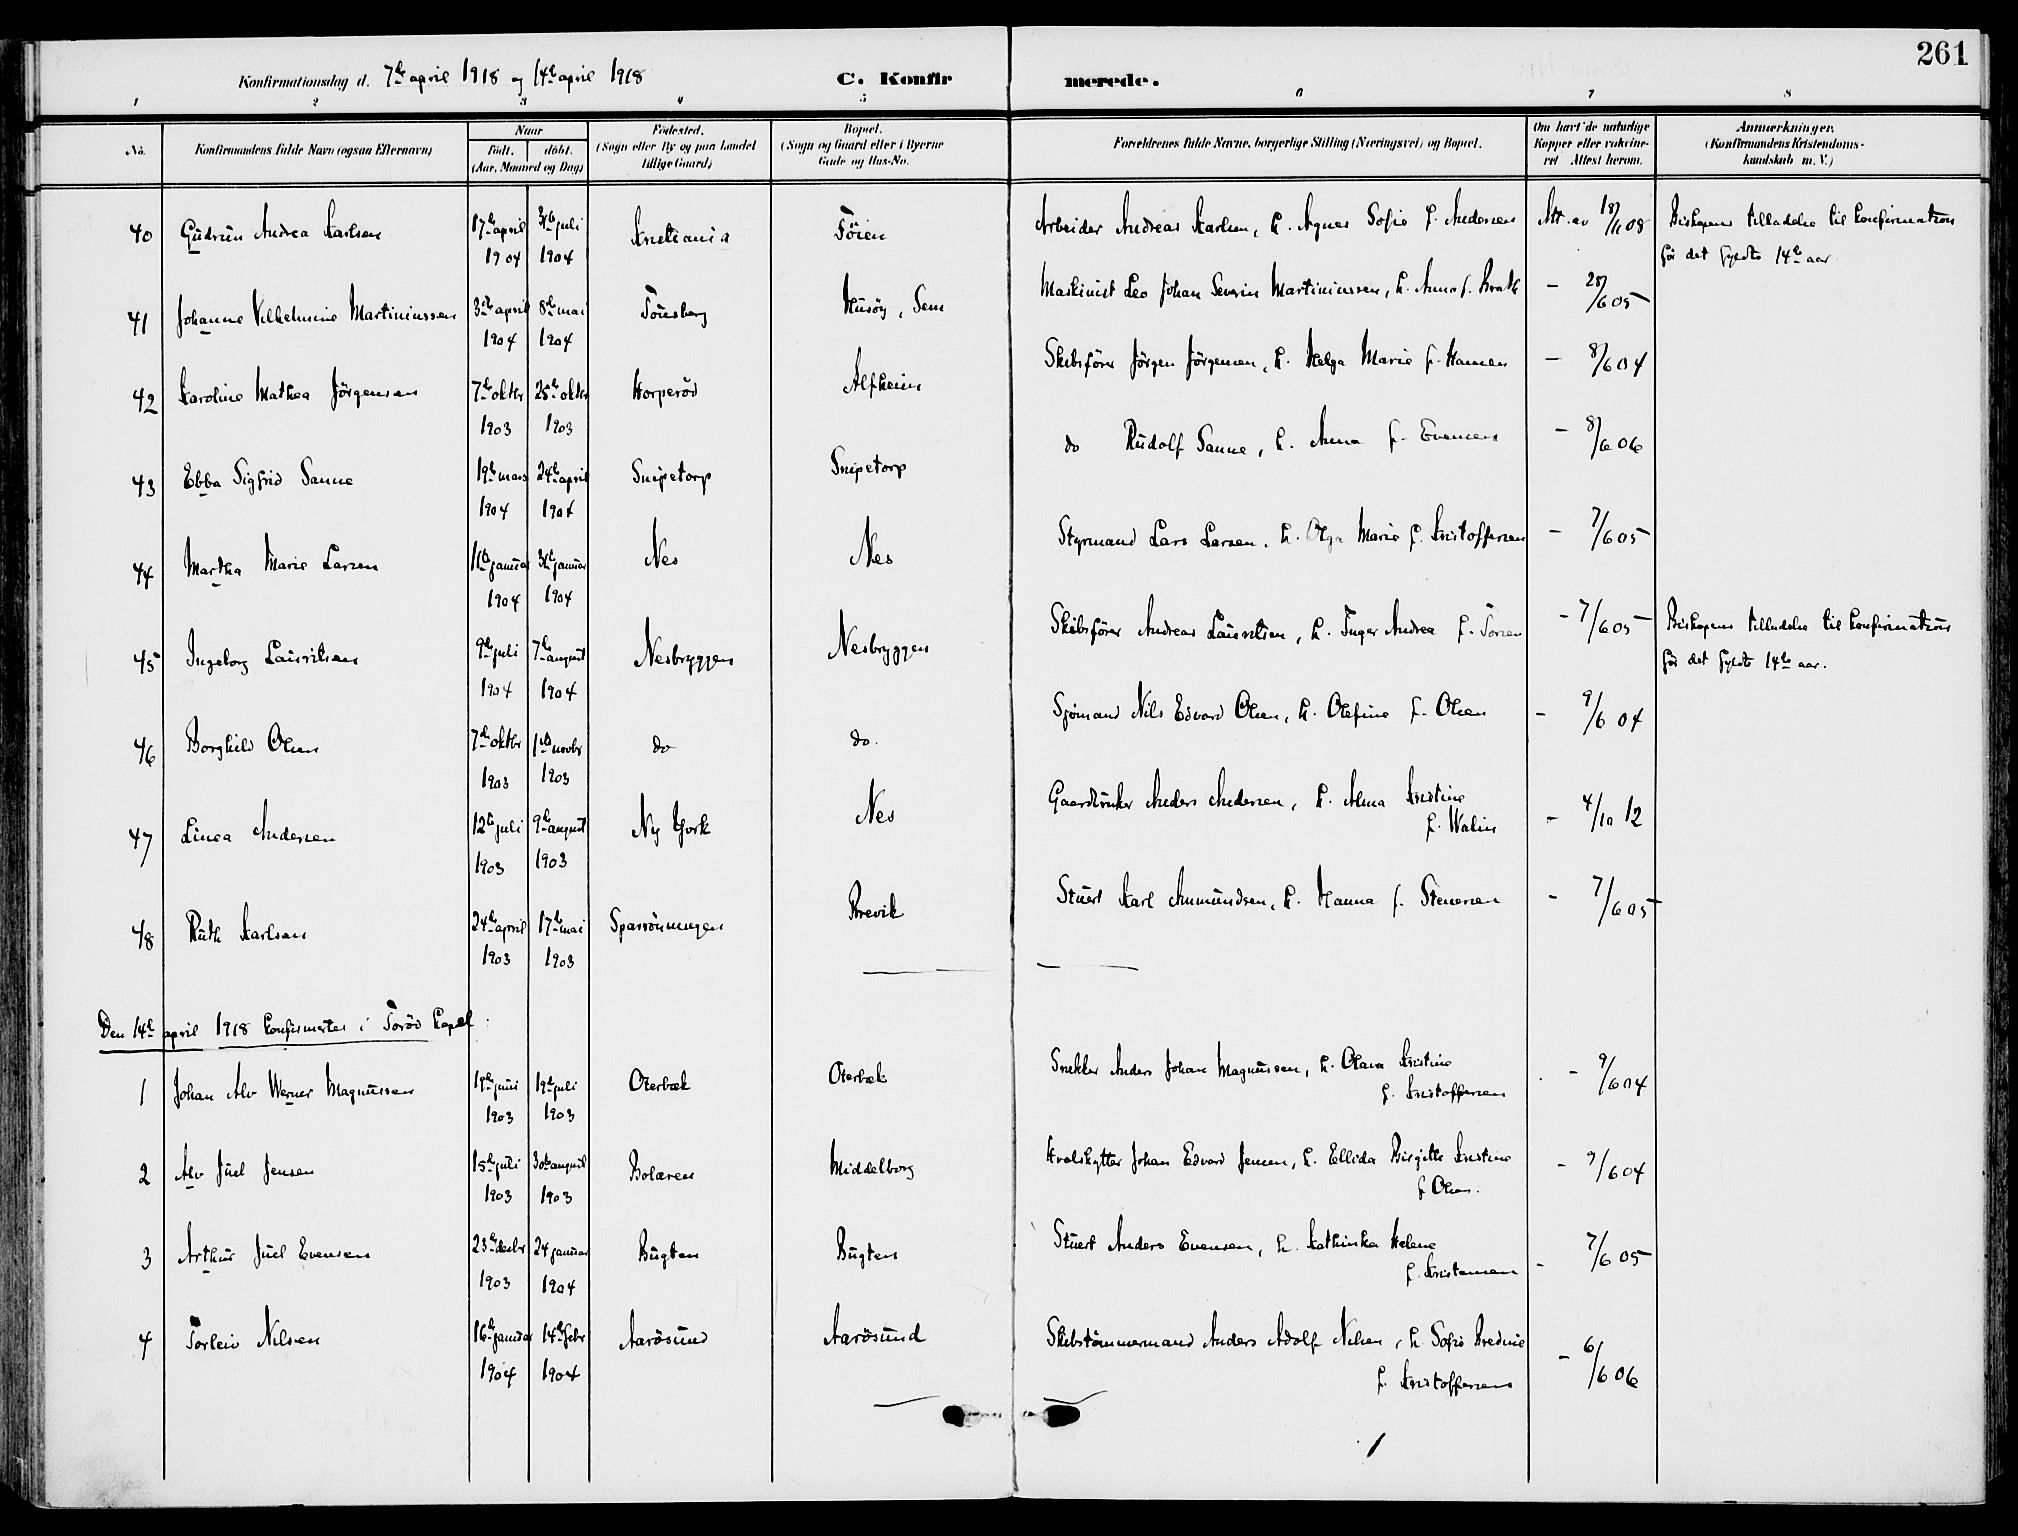 261
Konfirmationsdag d. 7de april 1918 og 14de april 1918 C. Konfir merede.
1 2 3 4 5 6 7 8
No. Konfirmandens fulde Navn (ogsaa Efternavn) Naar født. døbt. (Aar, Maaned og Dag) Fødested. (Sogn eller By og paa Landet tillige Gaard) Bopæl. (Sogn og Gaard eller i Byerne Gade og Hus-No. Forældrenes fulde Navne, borgerlige Stilling (Næringsvei) og Bopæl. Om havt de naturlige Kopper eller vakcineret Attest herom. Anmærkninger. (Konfirmandens Kristendomskundskab m. V.)
40 Gudrun Andrea Karlsen 17de april 1904 31te juli 1904 Kristiania Töien Arbeider Andreas Karlsen, h. Agnes Sofie f. Andersen Att. av 18/11 08 Biskopens tilladelse til konfirmation
før det fyldte 14de aar.
41 Johanne Vilhelmine Martiniussen 3die april 1904 8de mai 1904 Tönsberg Husöy, Sem Maskinist Leo Johan Severin Martiniussen, h. Anna f. Bratt – 28/6 05
42 Karoline Mathea Jörgensen 7de oktbr 1903 25de oktbr 1903 Horperöd Alfheim Skibsförer Jörgen Jörgensen, h. Helga Marie f. Hansen – 8/6 04
43 Ebba Sigfrid Sanne 19de mars 1904 24de april 1904 Snipetorp Snipetorp do Rudolf Sanne, h. Anna f. Evensen – 8/6 06
44 Martha Marie Larsen 11te januar 1904 31te januar 1904 Nes Nes Styrmand Lars Larsen, h. Olga Marie f. Kristoffersen – 7/6 05
45 Ingeborg Lauritsen 9de juli 1904 7de august 1904 Nesbryggen Nesbryggen Skibsförer Andreas Lauritsen, h. Inger Andrea f. – 7/6 05 Biskopens tilladelse til konfirmation
för det fyldte 14de aar.
46 Borghild Olsen 7de oktbr 1903 1ste novbr 1903 do do. Sjömand Nils Edvard Olsen, h. Olefine f. Olsen – 9/6 04
47 Linea Andersen 12te juli 1903 9de august 1903 Ny York Nes Gaardbruker Anders Andersen, h. Alma Kristine
f. Walin – 4/10 12
48 Ruth Karlsen 24de april 1903 17de mai 1903 Brevik Stuert Karl Amundsen, h. Hanna f. Stenersen – 7/6 05
Den 14de april 1918 konfirmertes i Toröd kapel:
1 Johan Alv Werner Magnussen 19de juni 1903 19de juli 1903 Oterbæk Oterbæk Snekker Anders Johan Magnussen, h. Olava Kristine
f. Kristoffersen – 9/6 04
2 Alv Juel Jensen 15de juli 1903 30te august 1903 Bolæren Middelborg Hvalskytter Johan Edvard Jensen, h. Ellida Birgitte Kristine
f. Olsen. – 9/6 04
3 Arthur Juel Evensen 23de desbr 1903 24 januar 1904 Bugten Bugten Stuert Anders Evensen, h. Kathinka Helene
f. Kristensen – 7/6 05
4 Torleiv Nilsen 16de januar 1904 14de febr 1904 Aarösund Aarösund Skibstömmermand Anders Adolf Nilsen, h. Sofie
f. Kristoffersen – 6/6 06